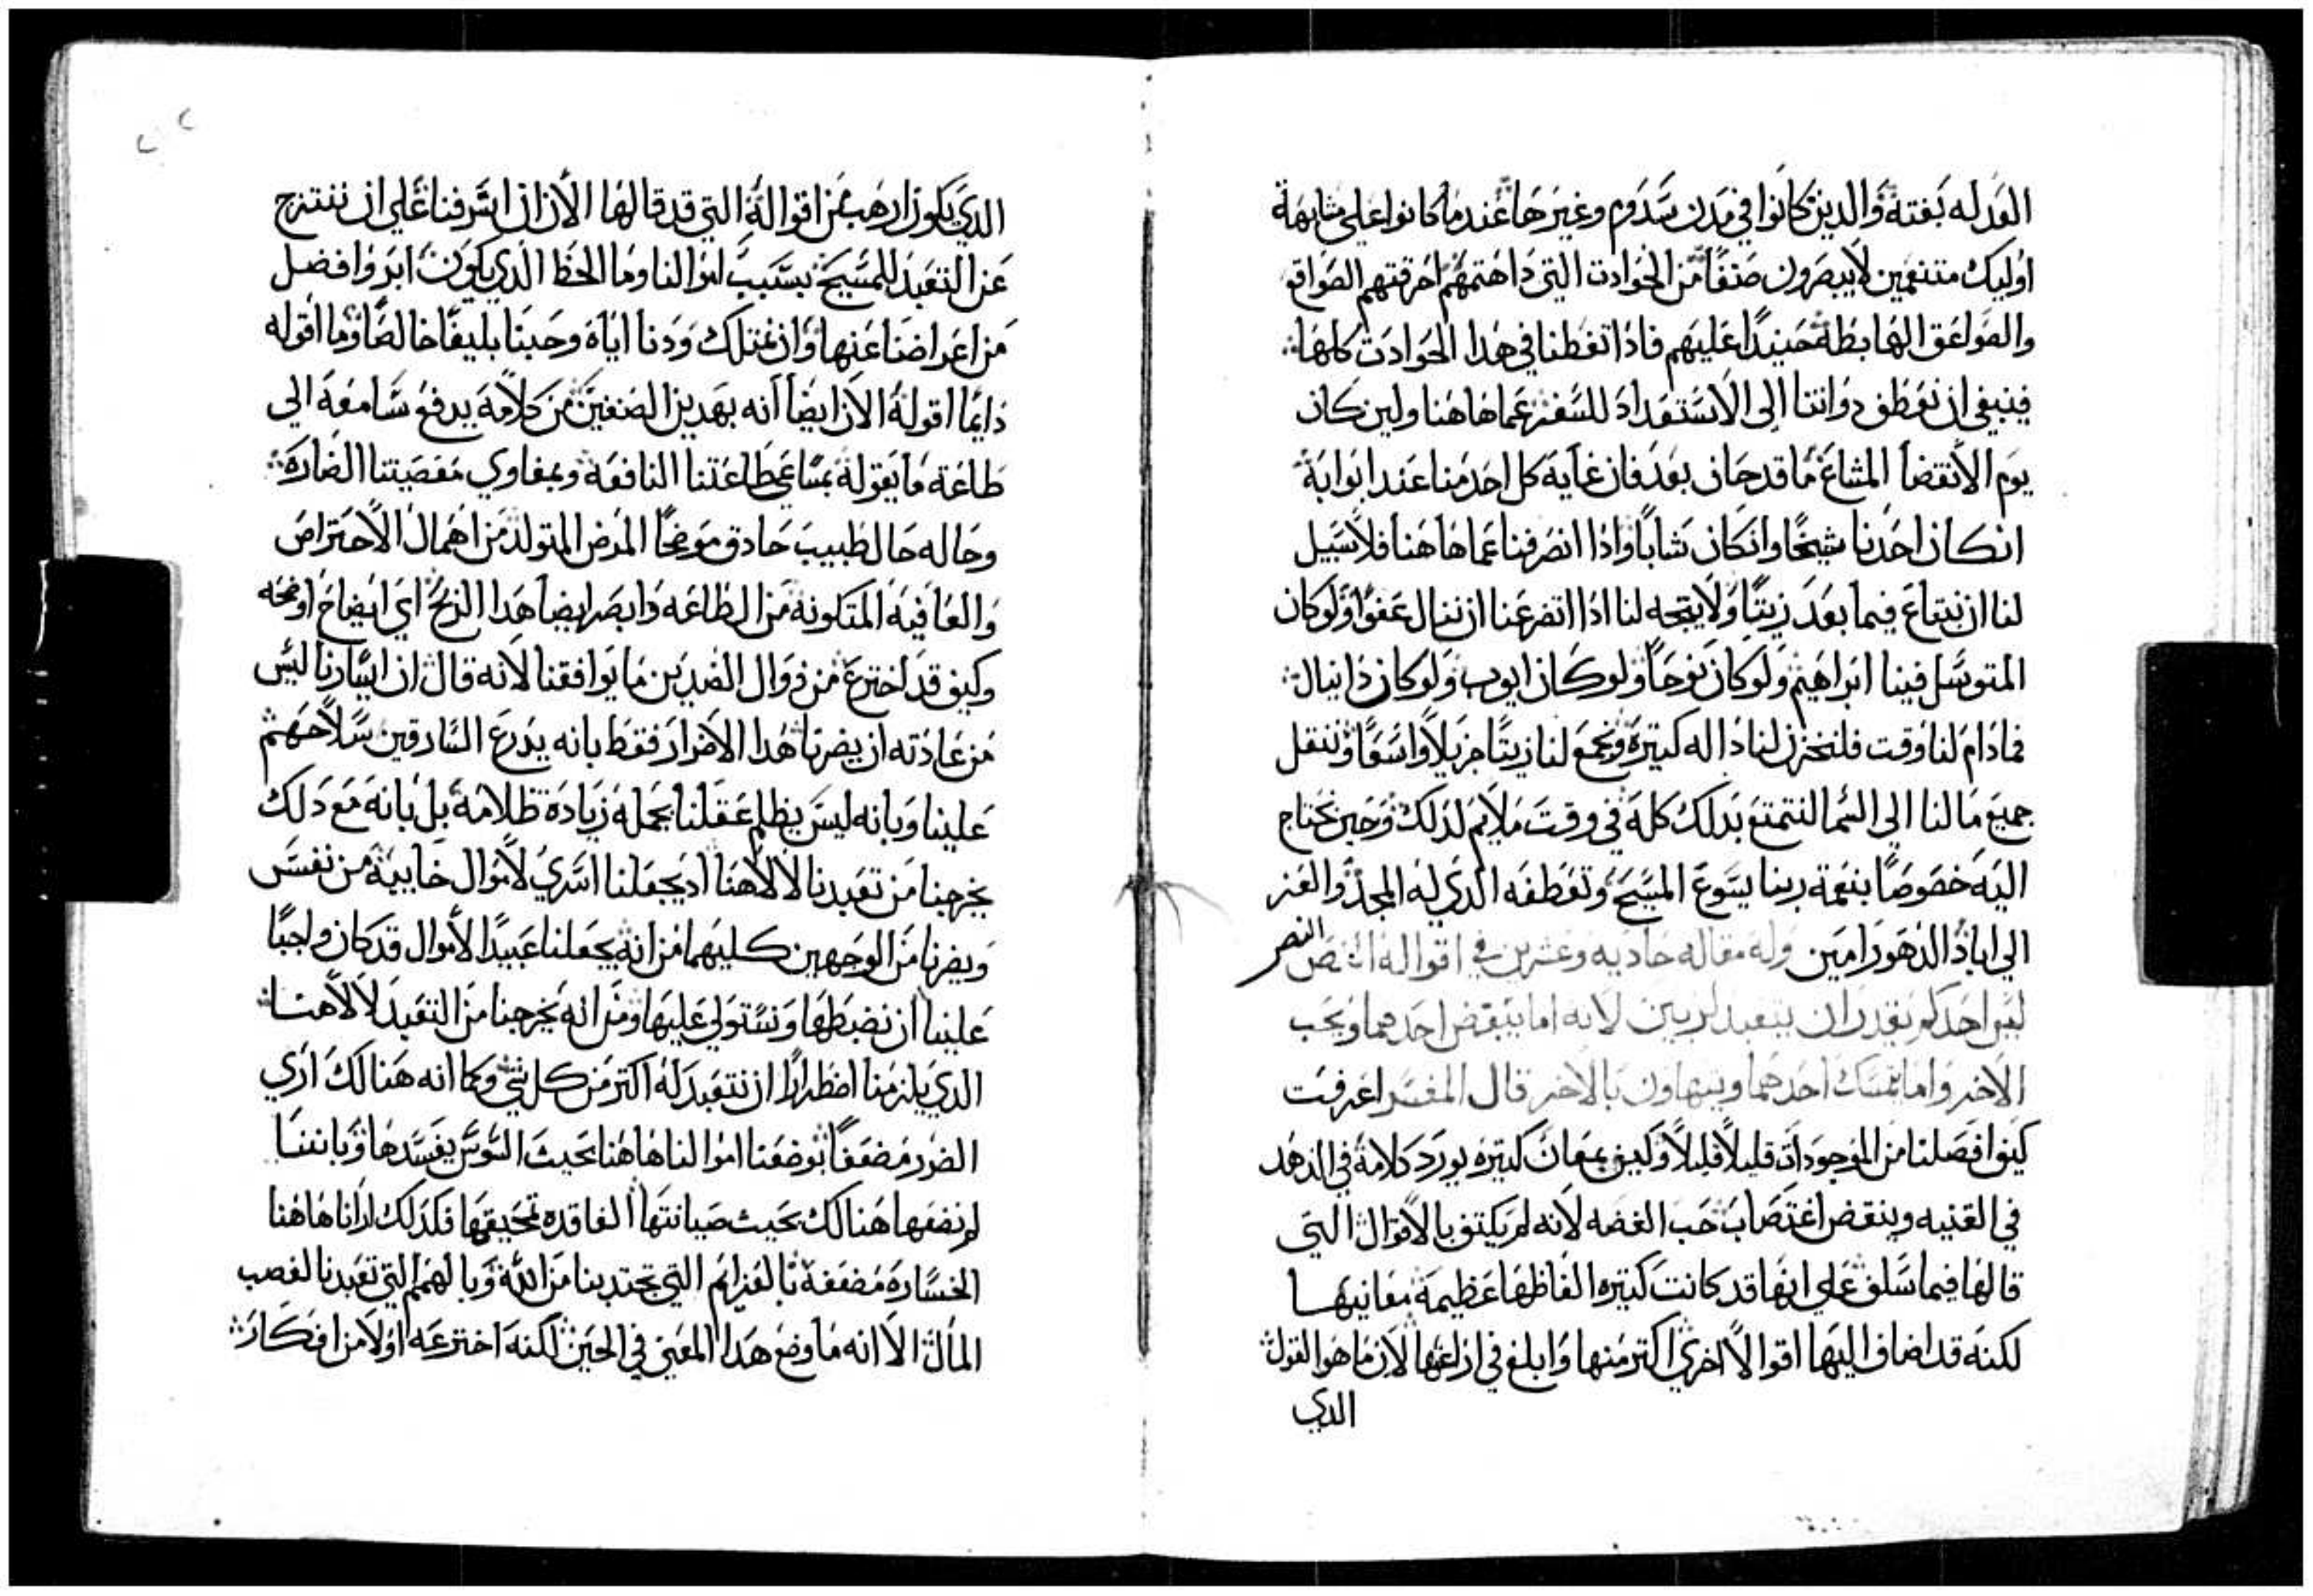 العدله بغتة والدين كانوا في مدن سدوم وغيرها عندما كانوا علي مثابهة
اوليك متنعمين لا يبصرون صنفا من الحوادت التي داهمتهم احرقتهم الصواقع
والصواعق الهابطة حينيدا عليهم فادا تفطنا في هدا الحوادت كلها
فينبغي ان نعطف دواتنا الي الاستعداد للسفر عما هاهنا ولين كان
يوم الانقضا المشاع ما قد حان بعد فان غاية كل احد منا عند ابوابة
ان كان احدنا شيخا وان كان شابا وادا انصرفنا عما هاهنا فلا سبيل
لنا ان نبتاع فيما بعد زيتا ولا يتجه لنا ادا اتضرعنا ان ننال عفوا ولو كان
المتوسل فينا ابراهيم ولو كان نوحا ولو كان ايوب ولو كان دانيال
فمادام لنا وقت فلنخزن لنا داله كتيرة ونجمع لنا زيتا جزيلا واسعا وننقل
جميع ما لنا الي السما لنتمتع بدلك كله في وقت ملايم لدلك وحين نحتاج
اليه خصوصا بنعمة ربنا يسوع المسيح وتعطفه الدي له المجد والعز
الي اباد الدهور امين وله مقاله حاديه وعشرين في اقواله النص
النص
ليس احدكم يقدر ان يتعبد لربين لانه اما يبغض احدهما ويحب
الاخر واما يتمسك احدهما ويتهاون بالاخر قال المفسر اعرفت
كيف افصلنا من الموجودات قليلا قليلا وكيف بمعان كتيره يورد كلامة في الزهد
في القنيه وينقض اغتصاب حب الفضه لانه لم يكتف بالاقوال التي
قالها فيما سلف علي انها قد كانت كتيره الفاظها عظيمة معانيها
لكنه قد اضاف اليها اقوالا اخري اكتر منها وابلغ في ازاعها لان ما هو القول
الدي
الدي يكون ارهب من اقوالة التي قد قالها الان ان اشرفنا علي ان ننتزح
عن التعبد للمسيح بسبب اموالنا وما الحظ الدي يكون ابر وافضل
من اعراضنا عنها وان نمتلك ودنا اياه وحبنا بليغا خالصا وما اقوله
دايما اقولة الان ايضا انه بهدين الصنفين من كلامة يدفع سامعة الي
طاعة ما يقولة بمساعي طاعتنا النافعه وبمغاوي معصيتنا الضاره
وحاله حال طبيب حادق موضحا المرض المتولد من اهمال الاحتراص
والعافية المتكونة من الطاعه وابصر ايضا هدا الربح اي ايضاح اوضحه
وكيف قد اخترع من زوال الضدين ما يوافقنا لانه قال ان ايسارنا ليس
من عادته ان يضرنا هدا الاضرار فقط بانه يدرع السارقين سلاحهم
علينا وبانه ليس يظلم عقلنا بجملة زيادة ظلامة بل بانه مع دلك
يخرجنا من تعبدنا لالاهنا اد يجعلنا اسري لاموال خايبة من نفس
ويضرنا من الوجهين كليهما من انه يجعلنا عبيدا لاموال قد كان واجبا
علينا ان نضبطها ونستولي عليها ومن انه يخرجنا من التعبد لالاهنا
الدي يلزمنا اضطرارا ان نتعبد له اكتر من كل شي وكما انه هنالك اري
الضرر مضعفا بوضعنا اموالنا هاهنا بحيث السوس يفسدها وباننا
لم نضعها هنالك بحيث صيانتها الفاقده تحيفها فكدلك ارانا هاهنا
الخسارة مضعفة بالغرايم التي تجتدبنا من الله وبالهمم التي تعبدنا لغصب
المال الا انه ما وضع هدا المعني في الحين لكنه اخترعه اولا من افكار